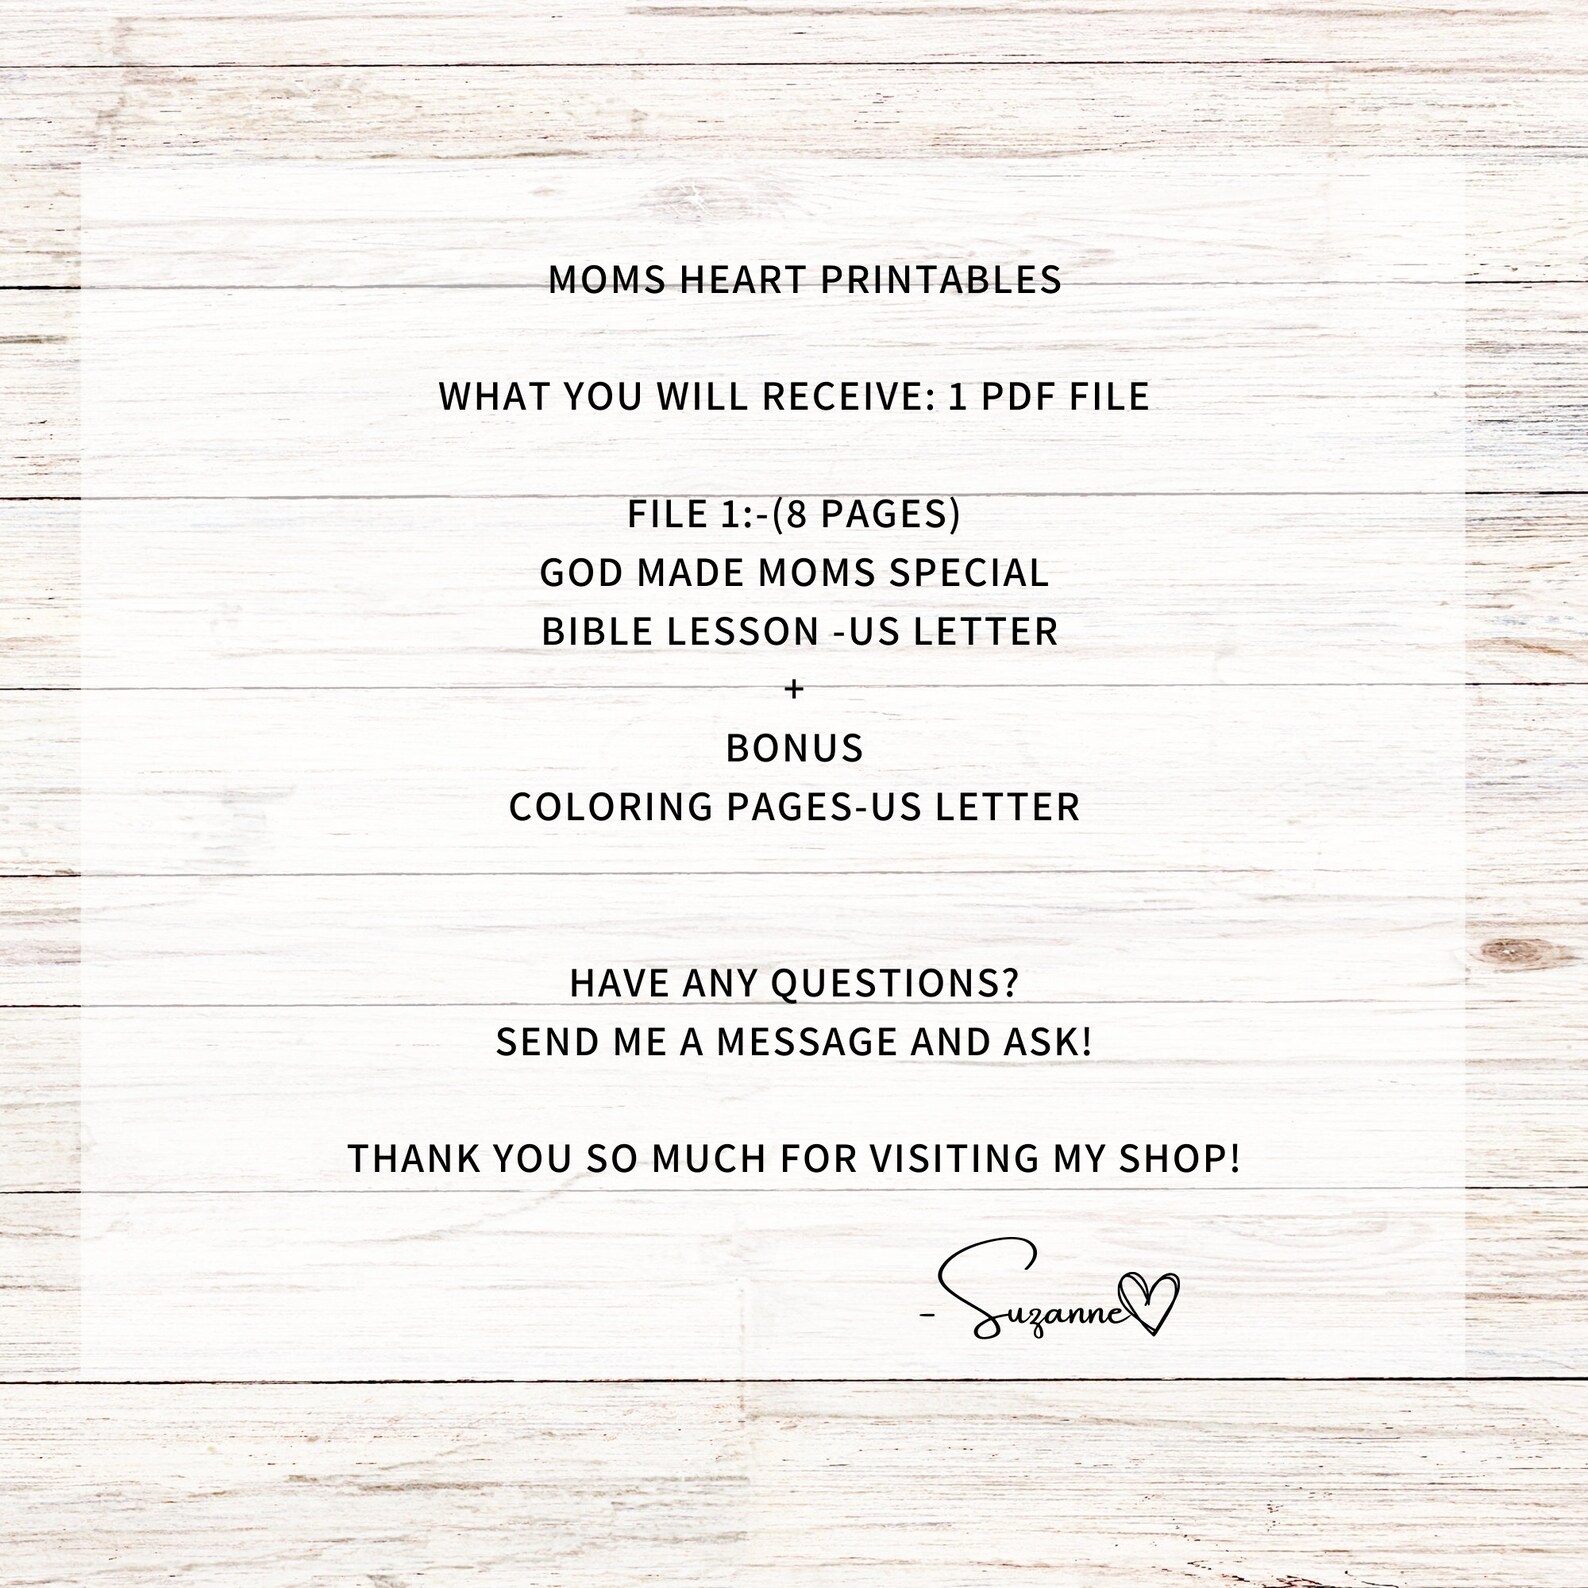 MOMS HEART PRINTABLES
WHAT YOU WILL RECEIVE: 1 PDF FILE
FILE 1:-(8 PAGES)
GOD MADE MOMS SPECIAL
BIBLE LESSON -US LETTER
+
BONUS
COLORING PAGES-US LETTER
HAVE ANY QUESTIONS?
SEND ME A MESSAGE AND ASK!
THANK YOU SO MUCH FOR VISITING MY SHOP!
-Suzanne